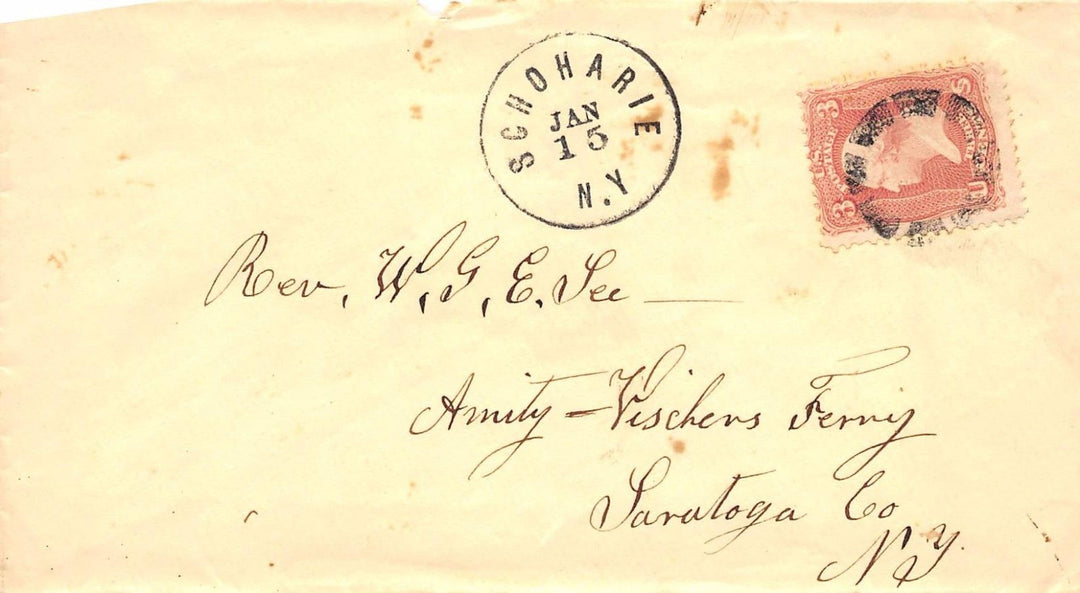 SCHOHARIE
JAN
15
N.Y
3 3
U
S
Rev. W. G. E. See
Amity - Vischers Ferry
Saratoga Co
N.Y.